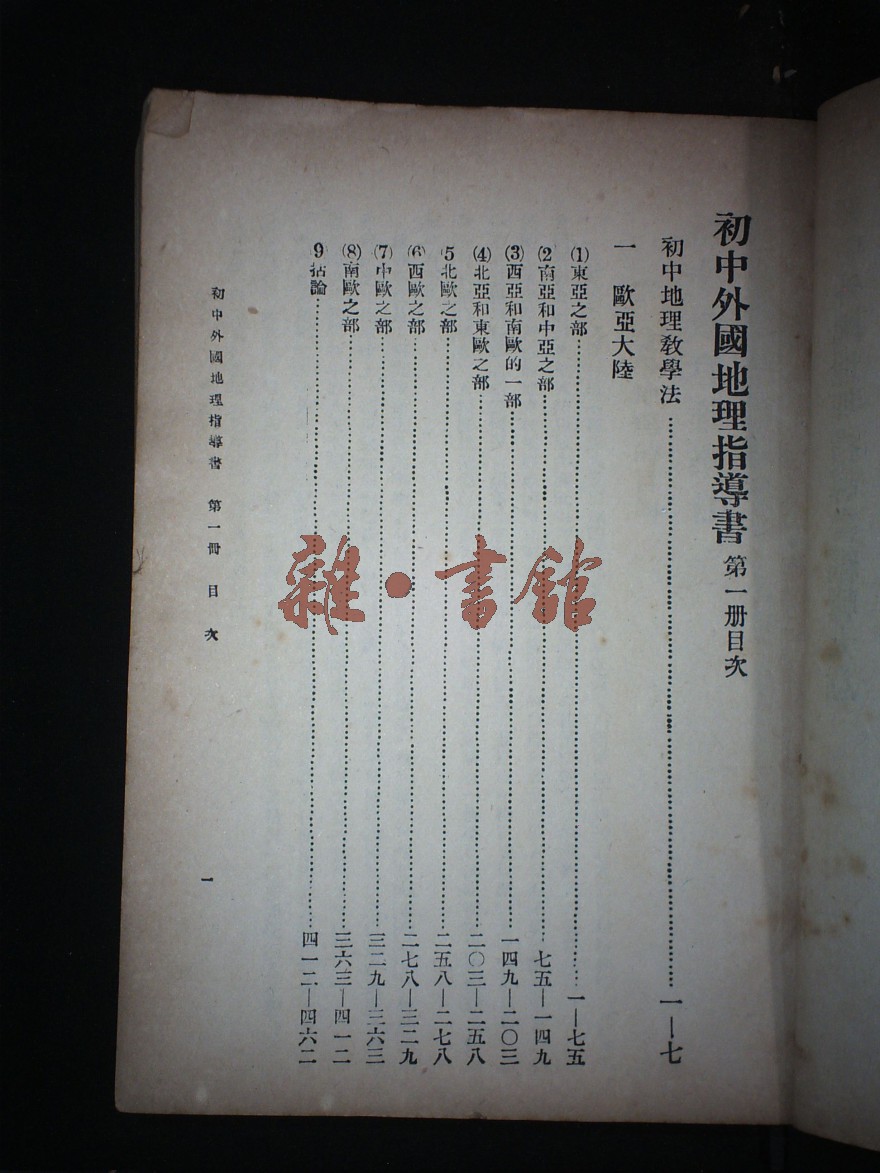 初中外國地理指導書 第一册目次
初中地理敎學法……一—七
一 歐亞大陸
(1)東亞之部……一—七五
(2)南亞和中亞之部……七五—一四九
(3)西亞和南歐的一部……一四九—二〇三
(4)北亞和東歐之部……二〇三—二五八
(5)北歐之部……二五八—二七八
(6)西歐之部……二七八—三二九
(7)中歐之部……三二九—三六三
(8)南歐之部……三六三—四一二
(9)括論……四一二—四六二
初中外國地理指導書 第一冊 目次
一
雜·書館